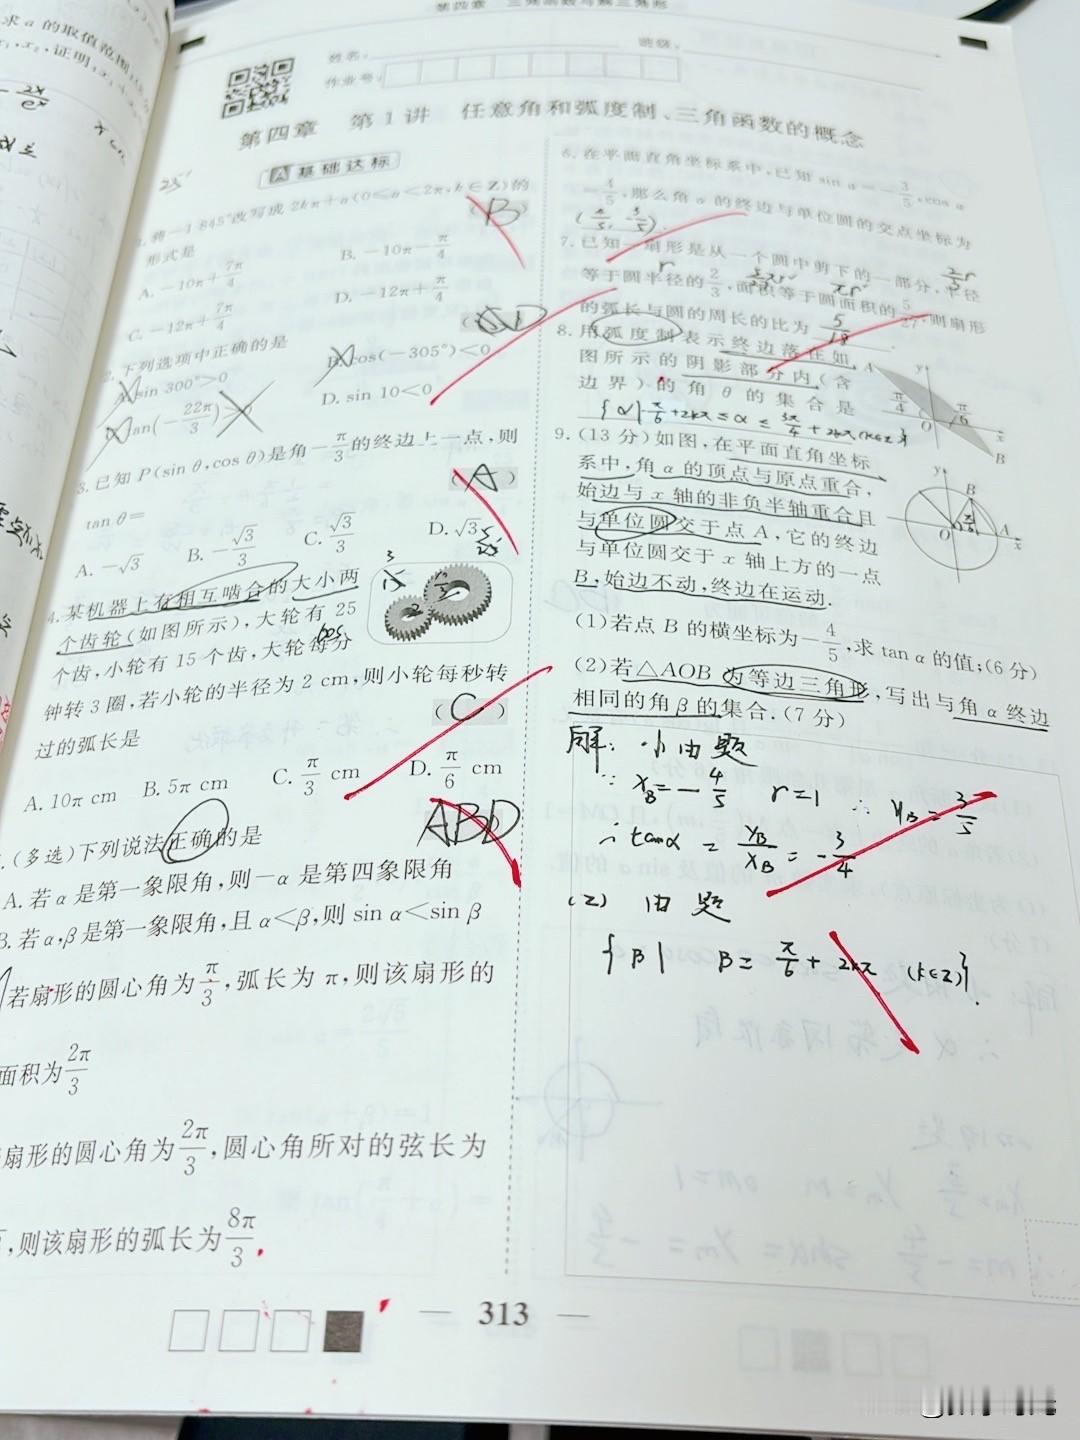 求a的取值范围
x₁,x₂,证明:x₁
第四章 三角函数与解三角形
姓名: 班级:
作业号:
第四章 第1讲 任意角和弧度制、三角函数的概念
A 基础达标
1.将-1 845°改写成2kπ+α(0≤α<2π,k∈Z)的
形式是 (B)
A.-10π+7π/4 B.-10π-π/4
C.-12π+7π/4 D.-12π+π/4
2.下列选项中正确的是
A.sin 300°>0 B.cos(-305°)<0
tan(-22π/3) D.sin 10<0
3.已知P(sin θ,cos θ)是角-π/3的终边上一点,则
tan θ= (A)
A.-√3 B.-√3/3 C.√3/3 D.√3
4.某机器上有相互啮合的大小两
个齿轮(如图所示),大轮有25
个齿,小轮有15个齿,大轮每分
60s
钟转3圈,若小轮的半径为2 cm,则小轮每秒转
过的弧长是 (C)
A.10π cm B.5π cm C.π/3 cm D.π/6 cm
ABD
(多选)下列说法正确的是
A.若α是第一象限角,则-α是第四象限角
B.若α,β是第一象限角,且α<β,则sin α<sin β
若扇形的圆心角为π/3,弧长为π,则该扇形的
面积为2π/3
扇形的圆心角为2π/3,圆心角所对的弦长为
,则该扇形的弧长为8π/3
6.在平面直角坐标系中,已知sin α=-3/5,cos α
=-4/5,那么角α的终边与单位圆的交点坐标为
7.已知一扇形是从一个圆中剪下的一部分,半径
等于圆半径的2/3,面积等于圆面积的5/27,则扇形
的弧长与圆的周长的比为 5/18
8.用弧度制表示终边落在如
图所示的阴影部分内(含
边界)的角θ的集合是
{α|-π/6+2kπ≤α≤3π/4+2kπ(k∈Z)}
A y π/4 π/6 O x B
9.(13分)如图,在平面直角坐标
系中,角α的顶点与原点重合,
始边与x轴的非负半轴重合且
与单位圆交于点A,它的终边
与单位圆交于x轴上方的一点
B,始边不动,终边在运动.
y B O A x
(1)若点B的横坐标为-4/5,求tan α的值;(6分)
(2)若△AOB为等边三角形,写出与角α终边
相同的角β的集合.(7分)
解: (1)由题
∵ x_B=-4/5 r=1 ∴ y_B=3/5
∴ tanα = y_B/x_B = -3/4
(2) 由题
{β| β=π/6+2kπ (k∈Z)}.
313